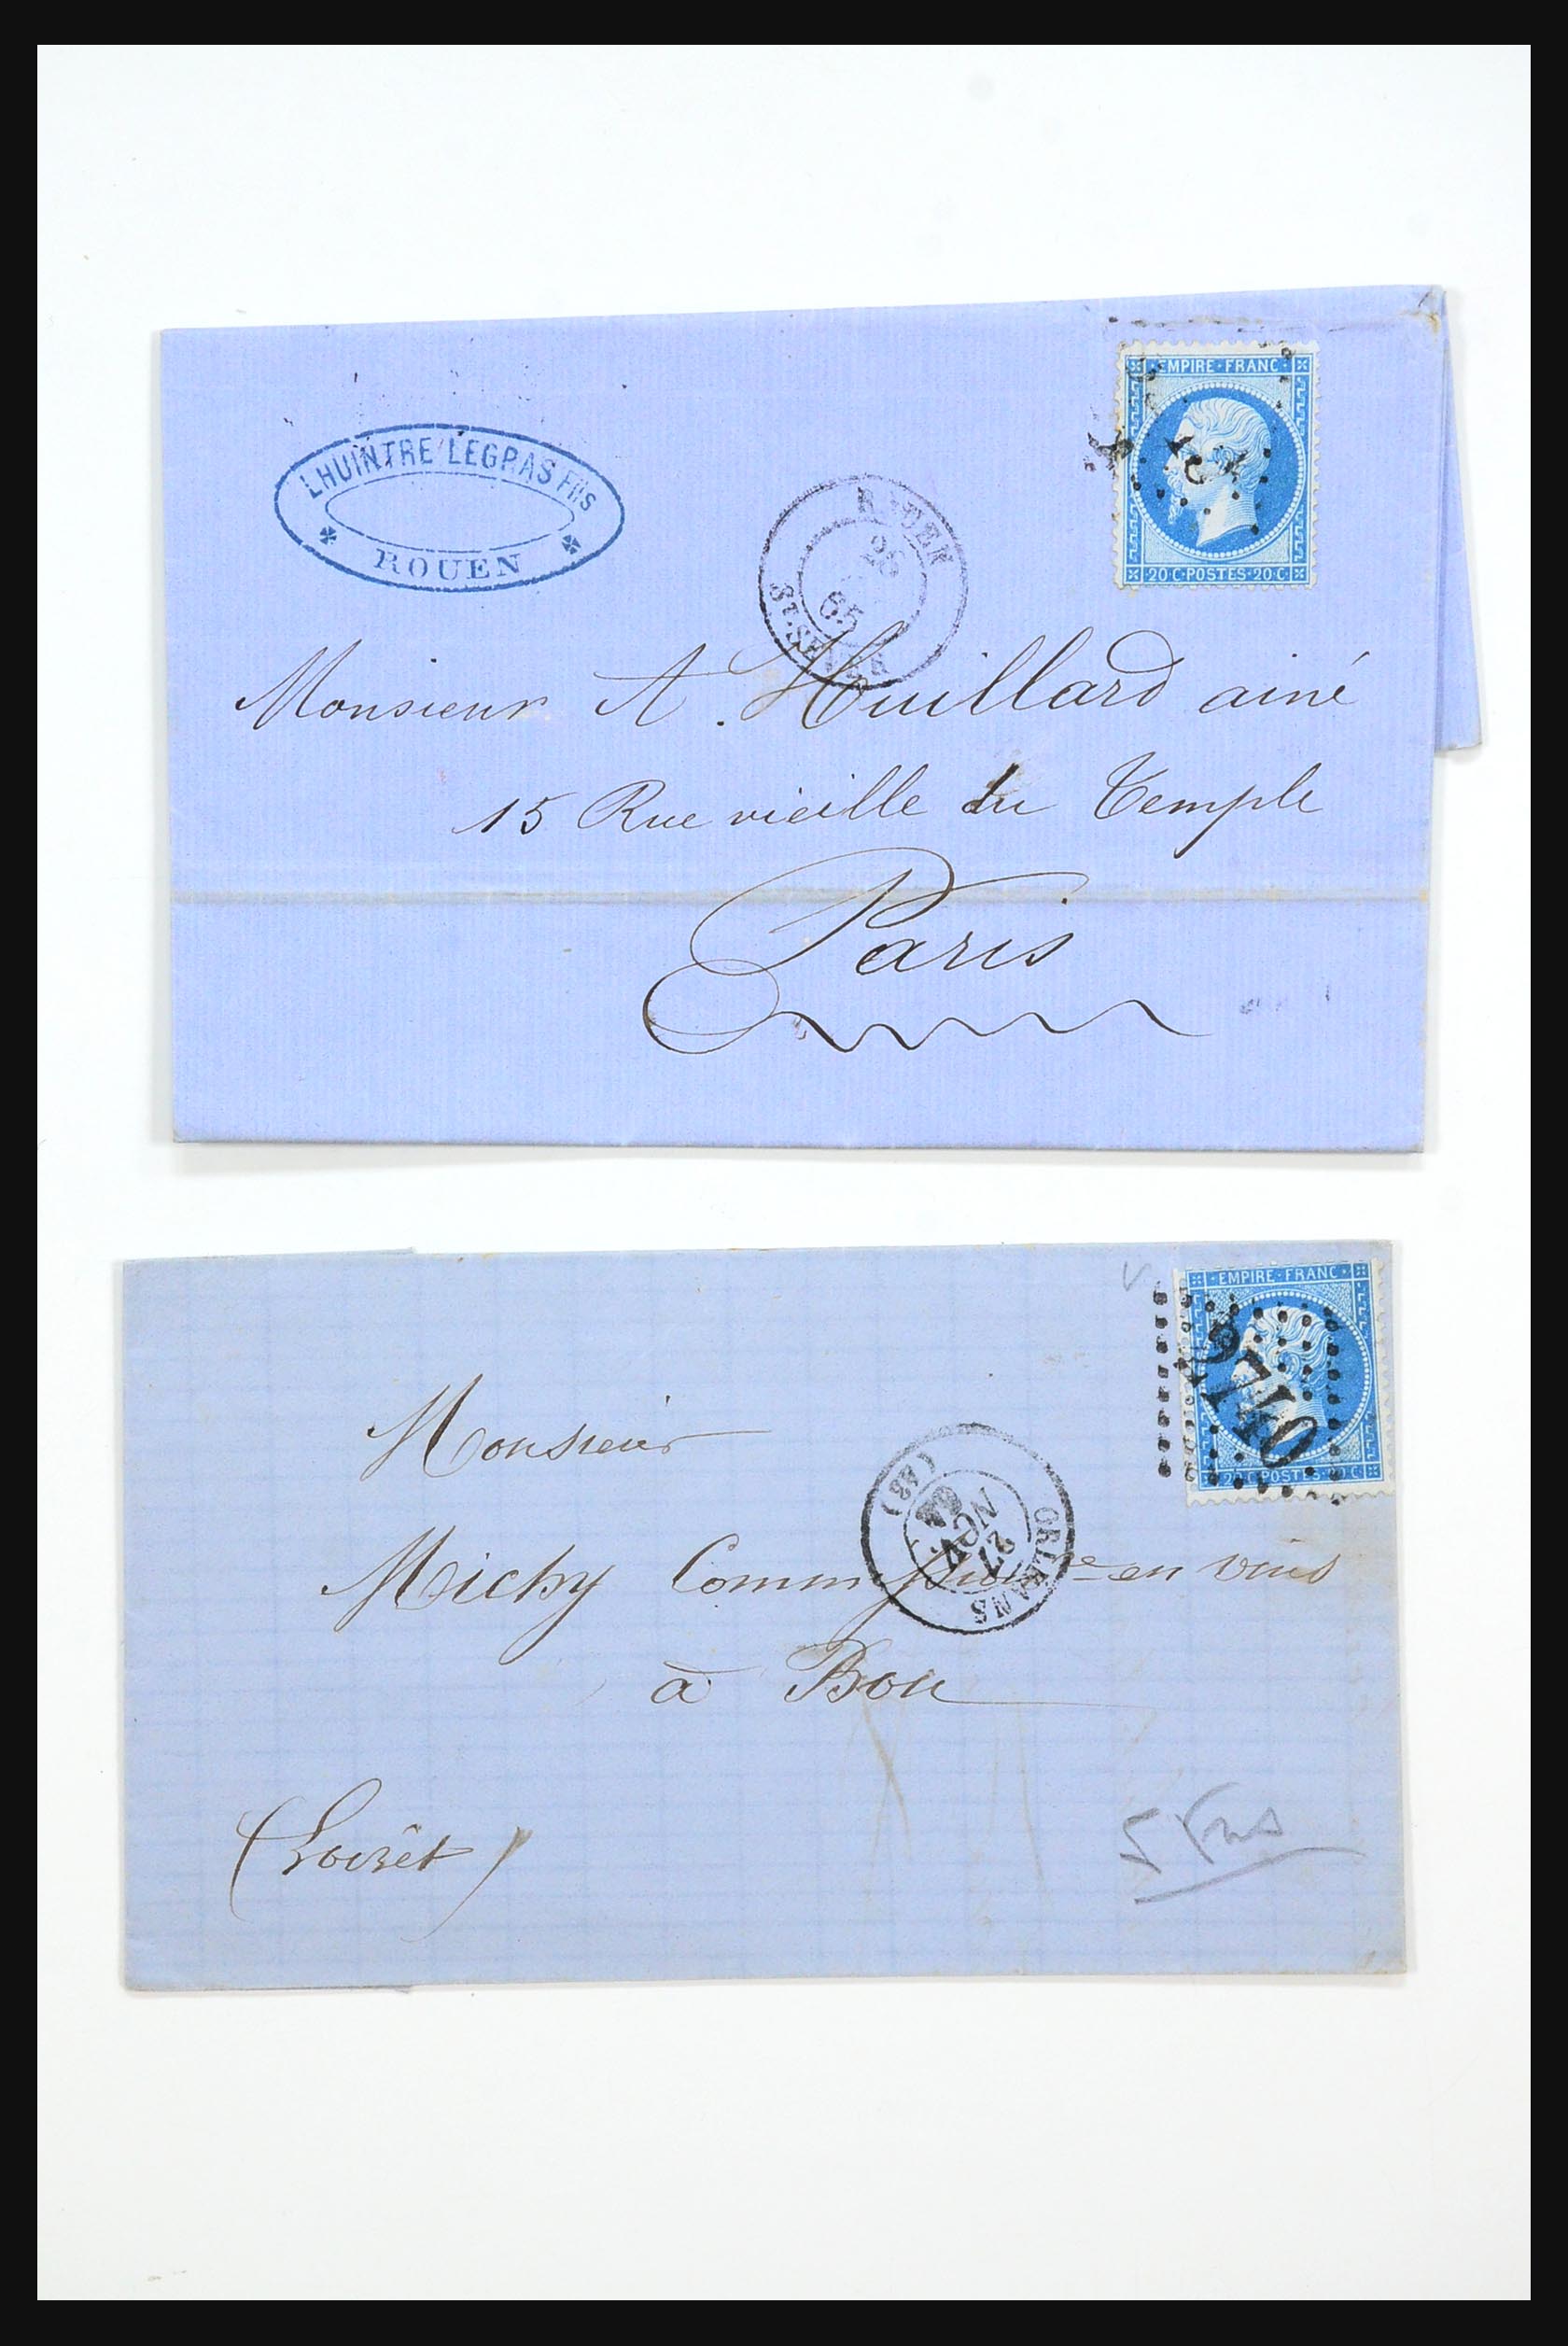 EMPIRE · FRANC
LHUINTRE LEGRAS FILS
ROUEN
ROUEN
65
ST-SEVER
20 C · POSTES · 20 C
Monsieur A. Huillard ainé
15 Rue vieille du Temple
Paris
EMPIRE · FRANC
2740
20 C · POSTES · 20 C
Monsieur
ORLEANS
(43)
27
NOV.
Michy Commissionre en vins
à Bou
(Loiret)
5